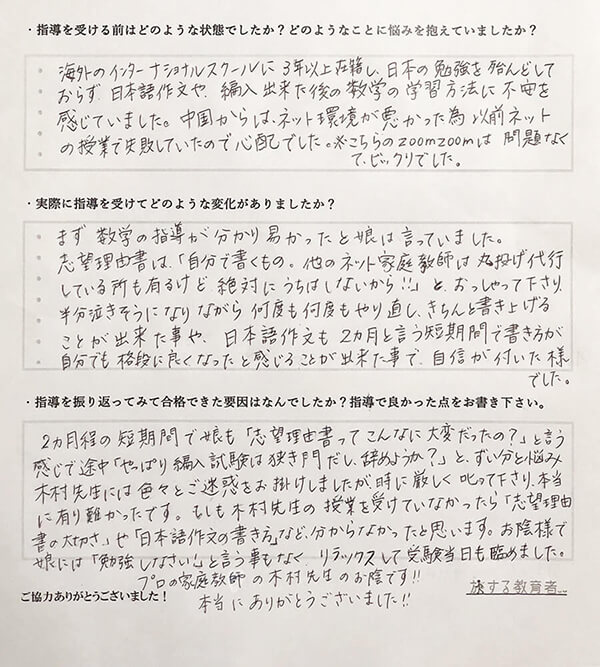 ・指導を受ける前はどのような状態でしたか？どのようなことに悩みを抱えていましたか？
海外のインターナショナルスクールに3年以上在籍し、日本の勉強を殆んどして
おらず、日本語作文や、編入出来た後の数学の学習方法に不安を
感じていました。中国からは、ネット環境が悪かった為、以前ネット
の授業で失敗していたので心配でした。※こちらのzoomzoomは問題なく
て、ビックリでした。
・実際に指導を受けてどのような変化がありましたか？
まず数学の指導が分かり易かったと娘は言っていました。
志望理由書は、「自分で書くもの。他のネット家庭教師は丸投げ代行
している所も有るけど絶対にうちはしないから!!」と、おっしゃって下さり、
半分泣きそうになりながら何度も何度もやり直し、きちんと書き上げる
ことが出来た事や、日本語作文も2ヵ月と言う短期間で書き方が
自分でも格段に良くなったと感じることが出来た事で、自信が付いた様
でした。
・指導を振り返ってみて合格できた要因はなんでしたか？指導で良かった点をお書き下さい。
2ヵ月程の短期間で娘も「志望理由書ってこんなに大変だったの？」と言う
感じで途中「やっぱり編入試験は狭き門だし、辞めようか？」と、ずい分と悩み
木村先生には色々とご迷惑をお掛けしましたが時に厳しく叱って下さり、本当
に有り難かったです。もしも木村先生の授業を受けていなかったら「志望理由
書の大切さ」や「日本語作文の書き方」など、分からなかったと思います。お陰様で
娘には「勉強しなさい!」と言う事もなく、リラックスして受験当日も臨めました。
プロの家庭教師の木村先生のお陰です!!
ご協力ありがとうございました！
本当にありがとうございました!!
旅する教育者